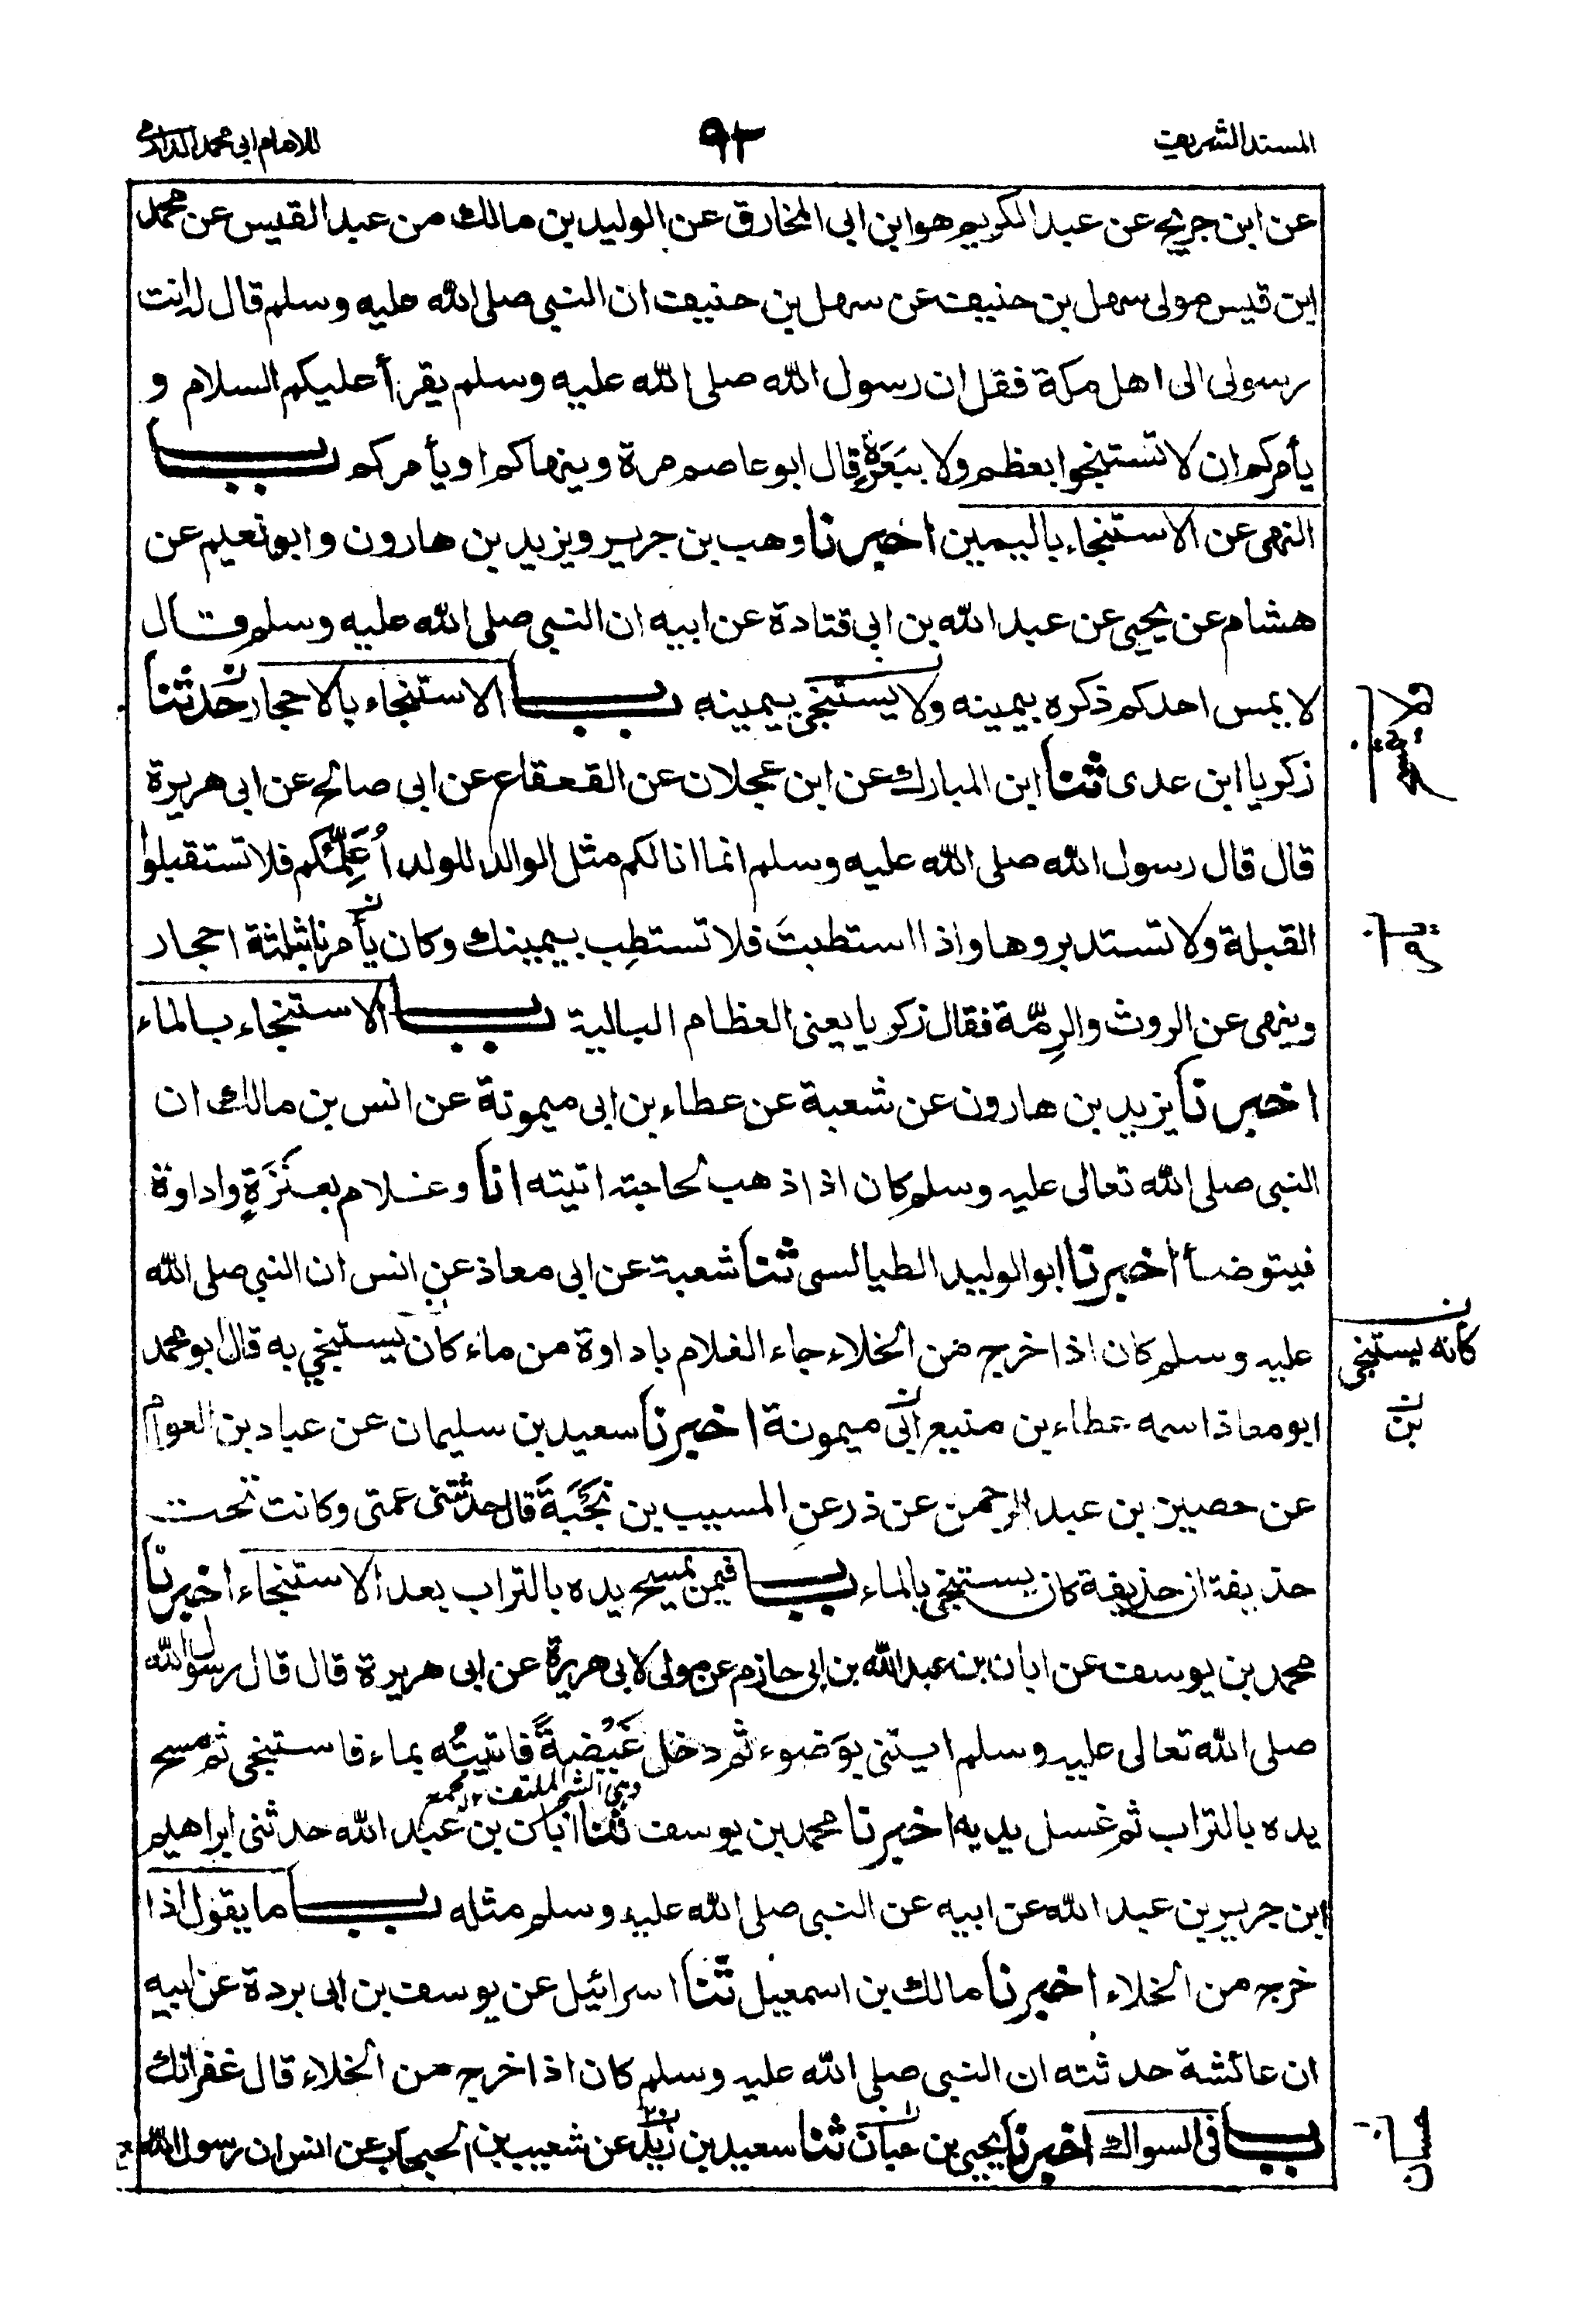 المسند الشريف
٩٢
للامام ابي محمد الدارمي
عن ابن جريج عن عبد الكريم هو ابن ابى المخارق عن الوليد بن مالك من عبد القيس عن محمد
ابن قيس مولى سهل بن حنيف عن سهل بن حنيف ان النبى صلى الله عليه وسلم قال له انت
رسولى الى اهل مكة فقل ان رسول الله صلى الله عليه وسلم يقرأ عليكم السلام و
يأمركم ان لا تستنجوا بعظم ولا ببَعَرَةٍ قال ابو عاصم مرة وينهاكم او يأمركم باب
النهى عن الاستنجاء باليمين اخبرنا وهب بن جرير ويزيد بن هارون وابو نعيم عن
هشام عن يحيى عن عبد الله بن ابى قتادة عن ابيه ان النبى صلى الله عليه وسلم قال
لا يمس احدكم ذكره بيمينه ولا يستنجى بيمينه باب الاستنجاء بالاحجار حدثنا
زكريا ابن عدى ثنا ابن المبارك عن ابن عجلان عن القعقاع عن ابى صالح عن ابى هريرة
قال قال رسول الله صلى الله عليه وسلم انما انا لكم مثل الوالد للولد اُعَلِّمُكم فلا تستقبلوا
القبلة ولا تستدبروها واذا استطبتَ فلا تستطِب بيمينك وكان يأمرنا بثلثة احجار
وينهى عن الروث والرِمّة فقال زكريا يعنى العظام البالية باب الاستنجاء بالماء
اخبرنا يزيد بن هارون عن شعبة عن عطاء بن ابى ميمونة عن انس بن مالك ان
النبى صلى الله تعالى عليه وسلم كان اذا ذهب لحاجته اتيته انا وغلام بعنَزَةٍ واداوة
فيتوضأ اخبرنا ابو الوليد الطيالسى ثنا شعبة عن ابى معاذ عن انس ان النبى صلى الله
عليه وسلم كان اذا خرج من الخلاء جاء الغلام باداوة من ماء كان يستنجي به قال ابو محمد
كانه يستنجى
ابو معاذ اسمه عطاء بن منيع ابى ميمونة اخبرنا سعيد بن سليمان عن عباد بن العوام
بن
عن حصين بن عبد الرحمن عن ذر عن المسيب بن نجَبَةَ قال حدثتنى عمتى وكانت تحت
حذيفة ان حذيفة كان يستنجى بالماء باب فيمن يمسح يده بالتراب بعد الاستنجاء اخبرنا
محمد بن يوسف عن ابان بن عبد الله بن ابى حازم عن مولى لابى هريرة عن ابى هريرة قال قال رسول الله
صلى الله تعالى عليه وسلم ايتنى بوَضوء ثم دخل غَيْضَةً فاتيتُه بماء فاستنجى ثم مسح
وهى الشجر الملتف ١٢ مجمع
يده بالتراب ثم غسل يديه اخبرنا محمد بن يوسف ثنا ابان بن عبد الله حدثنى ابراهيم
ابن جرير بن عبد الله عن ابيه عن النبى صلى الله عليه وسلم مثله باب ما يقول اذا
خرج من الخلاء اخبرنا مالك بن اسمعيل ثنا اسرائيل عن يوسف بن ابى بردة عن ابيه
ان عائشة حدثته ان النبى صلى الله عليه وسلم كان اذا خرج من الخلاء قال غفرانك
باب فى السواك اخبرنا يحيى بن حبان ثنا سعيد بن زيد عن شعيب بن الحبحاب عن انس ان رسول الله
حسان